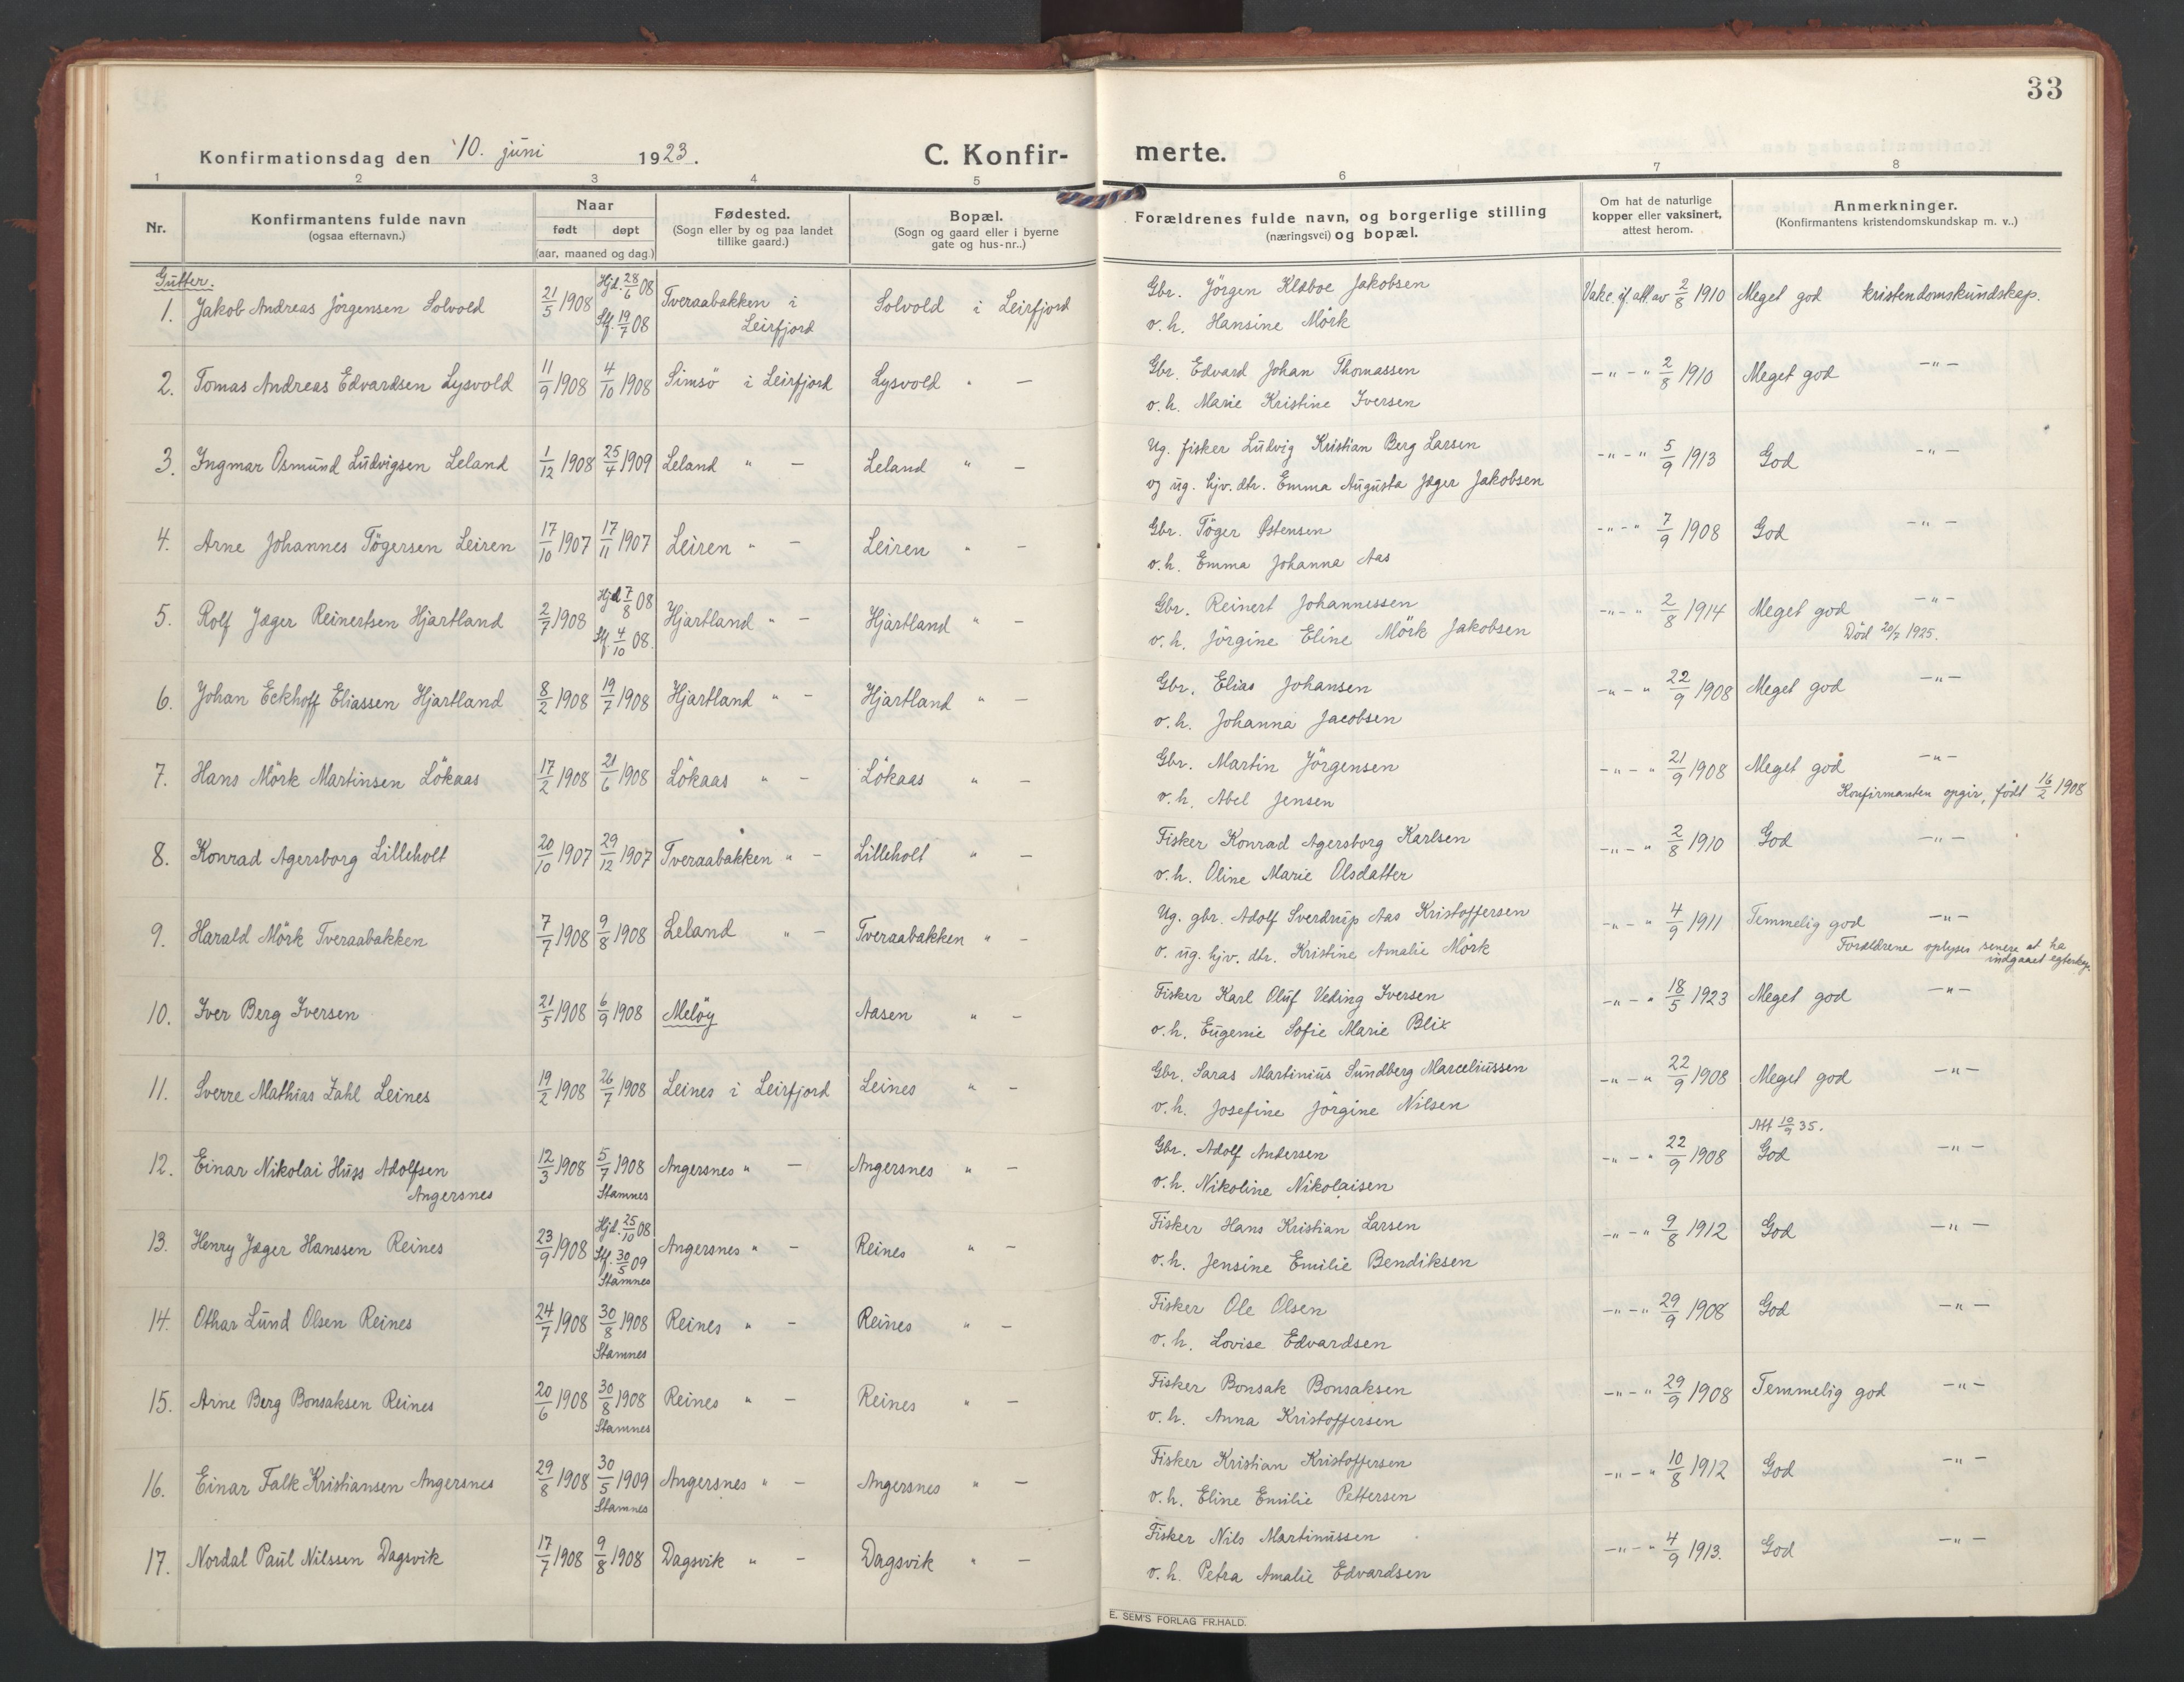 33
Konfirmationsdag den 10. juni 1923.
C. Konfir-
merte.
1 2 3 4 5 6 7 8
Nr.
Konfirmantens fulde navn
(ogsaa efternavn.)
Naar
født døpt
(aar, maaned og dag.)
Fødested.
(Sogn eller by og paa landet
tillike gaard.)
Bopæl.
(Sogn og gaard eller i byerne
gate og hus-nr..)
Forældrenes fulde navn, og borgerlige stilling
(næringsvei) og bopæl.
Om hat de naturlige
kopper eller vaksinert,
attest herom.
Anmerkninger.
(Konfirmantens kristendomskundskap m. v..)
Gutter.
1. Jakob Andreas Jörgensen Solvold 21/5 1908 Hjd. 28/6 08 Stf. 19/7 08 Tveraabakken i Leirfjord Solvold i Leirfjord
Gbr. Jörgen Klæboe Jakobsen
o. h. Hansine Mörk
Vakc. if. att. av 2/8 1910 Meget god kristendomskundskap.
2. Tomas Andreas Edvardsen Lysvold 11/9 1908 4/10 1908 Simsö i Leirfjord Lysvold " —
Gbr. Edvard Johan Thomassen
o. h. Marie Kristine Iversen
—"—" 2/8 1910 Meget god —"—
3. Ingmar Osmund Ludvigsen Leland 1/12 1908 25/4 1909 Leland " — Leland " —
Ug. fisker Ludvig Kristian Berg Larsen
og ug. hjv. dtr. Emma Augusta Jæger Jakobsen
—"—" 5/9 1913 God —"—
4. Arne Johannes Tögersen Leiren 17/10 1907 17/11 1907 Leiren " — Leiren " —
Gbr. Töger Østensen
o. h. Emma Johanna Aas
—"—" 7/9 1908 God —"—
5. Rolf Jæger Reinertsen Hjartland 2/7 1908 Hjd 7/8 08 Stf. 4/10 08. Hjartland " — Hjartland " —
Gbr. Reinert Johannessen
o. h. Jörgine Eline Mörk Jakobsen
—"—" 2/8 1914 Meget god —"—
Död 20/7 1925.
6. Johan Eckhoff Eliassen Hjartland 8/2 1908 19/7 1908 Hjartland " — Hjartland " —
Gbr. Elias Johansen
o. h. Johanna Jacobsen
—"—" 22/9 1908 Meget god —"—
7. Hans Mörk Martinsen Lökaas 17/2 1908 21/6 1908 Lökaas " — Lökaas " —
Gbr. Martin Jörgensen
o. h. Abel Jensen
—"—" 21/9 1908 Meget god —"—
Konfirmanten opgir, født 16/2 1908
8. Konrad Agersborg Lilleholt 20/10 1907 29/12 1907 Tveraabakken " — Lilleholt " —
Fisker Konrad Agersborg Karlsen
o. h. Oline Marie Olsdatter
—"—" 2/8 1910 God —"—
9. Harald Mörk Tveraabakken 7/7 1908 9/8 1908 Leland " — Tveraabakken " —
Ug. gbr. Adolf Sverdrup Aas Kristoffersen
o. ug. hjv. dtr. Kristine Amalie Mörk
—"—" 4/9 1911 Temmelig god —"—
Forældrene oplyses senere at ha
indgaaet egteskap.
10. Iver Berg Iversen 21/5 1908 6/9 1908 Melöy Aasen " —
Fisker Karl Oluf Veding Iversen
o. h. Eugenie Sofie Marie Blix
—"—" 18/5 1923 Meget god —"—
11. Sverre Mathias Zahl Leines 19/2 1908 26/7 1908 Leines i Leirfjord Leines " —
Gbr. Saras Martinius Sundberg Marceliussen
o. h. Josefine Jörgine Nilsen
—"—" 22/9 1908 Meget god —"—
Att 10/9 35.
12. Einar Nikolai Huss Adolfsen Angersnes 12/3 1908 5/7 1908 Stamnes Angersnes " — Angersnes " —
Gbr. Adolf Andersen
o. h. Nikoline Nikolaisen
—"—" 22/9 1908 God —"—
13. Henry Jæger Hanssen Reines 23/9 1908 Hjd. 25/10 08 Stf. 30/5 09 Stamnes Angersnes " — Reines " —
Fisker Hans Kristian Larsen
o. h. Jensine Emilie Bendiksen
—"—" 9/8 1912 God —"—
14. Othar Lund Olsen Reines 24/7 1908 30/8 1908 Stamnes Reines " — Reines " —
Fisker Ole Olsen
o. h. Lovise Edvardsen
—"—" 29/9 1908 God —"—
15. Arne Berg Bonsaksen Reines 20/6 1908 30/8 1908 Stamnes Reines " — Reines " —
Fisker Bonsak Bonsaksen
o. h. Anna Kristoffersen
—"—" 29/9 1908 Temmelig god —"—
16. Einar Falk Kristiansen Angersnes 29/8 1908 30/5 1909 Stamnes Angersnes " — Angersnes " —
Fisker Kristian Kristoffersen
o. h. Eline Emilie Pettersen
—"—" 10/8 1912 God —"—
17. Nordal Paul Nilssen Dagsvik 17/7 1908 9/8 1908 Dagsvik " — Dagsvik " —
Fisker Nils Martinussen
o. h. Petra Amalie Edvardsen
—"—" 4/9 1913. God —"—
E. SEM'S FORLAG FR.HALD.